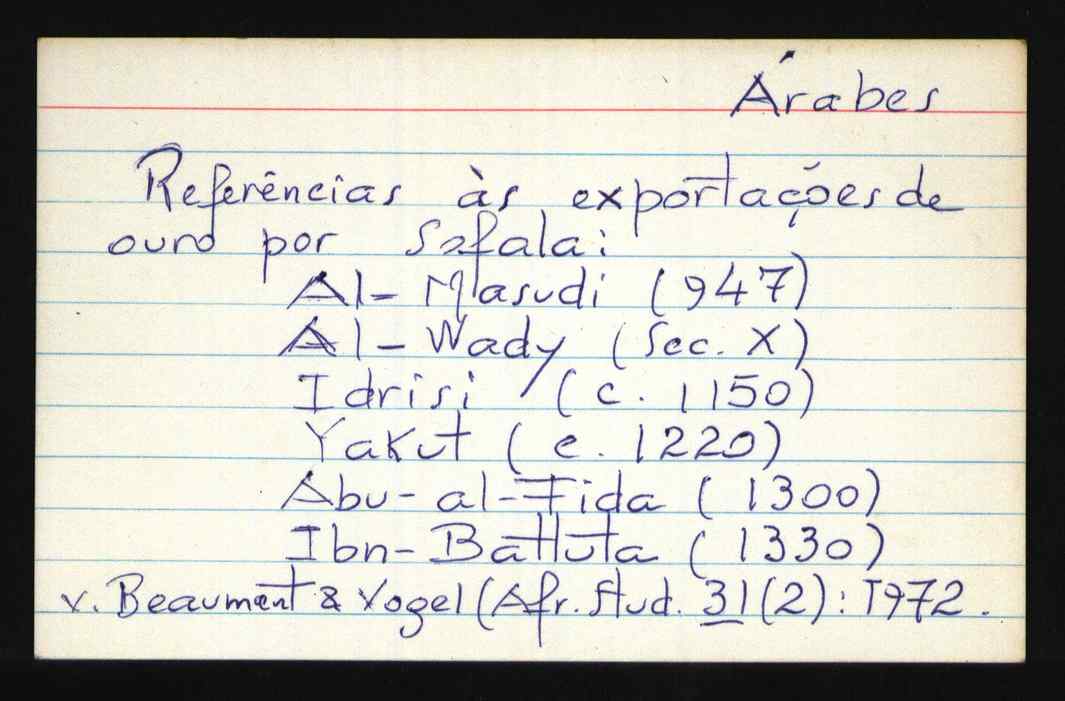 Árabes
Referências às exportações de
ouro por Sofala:
Al-Masudi (947)
Al-Wady (Sec. X)
Idrisi (c. 1150)
Yakut (c. 1220)
Abu-al-Fida (1300)
Ibn-Battuta (1330)
v. Beaumont & Vogel (Afr. Stud. 31(2): 1972.